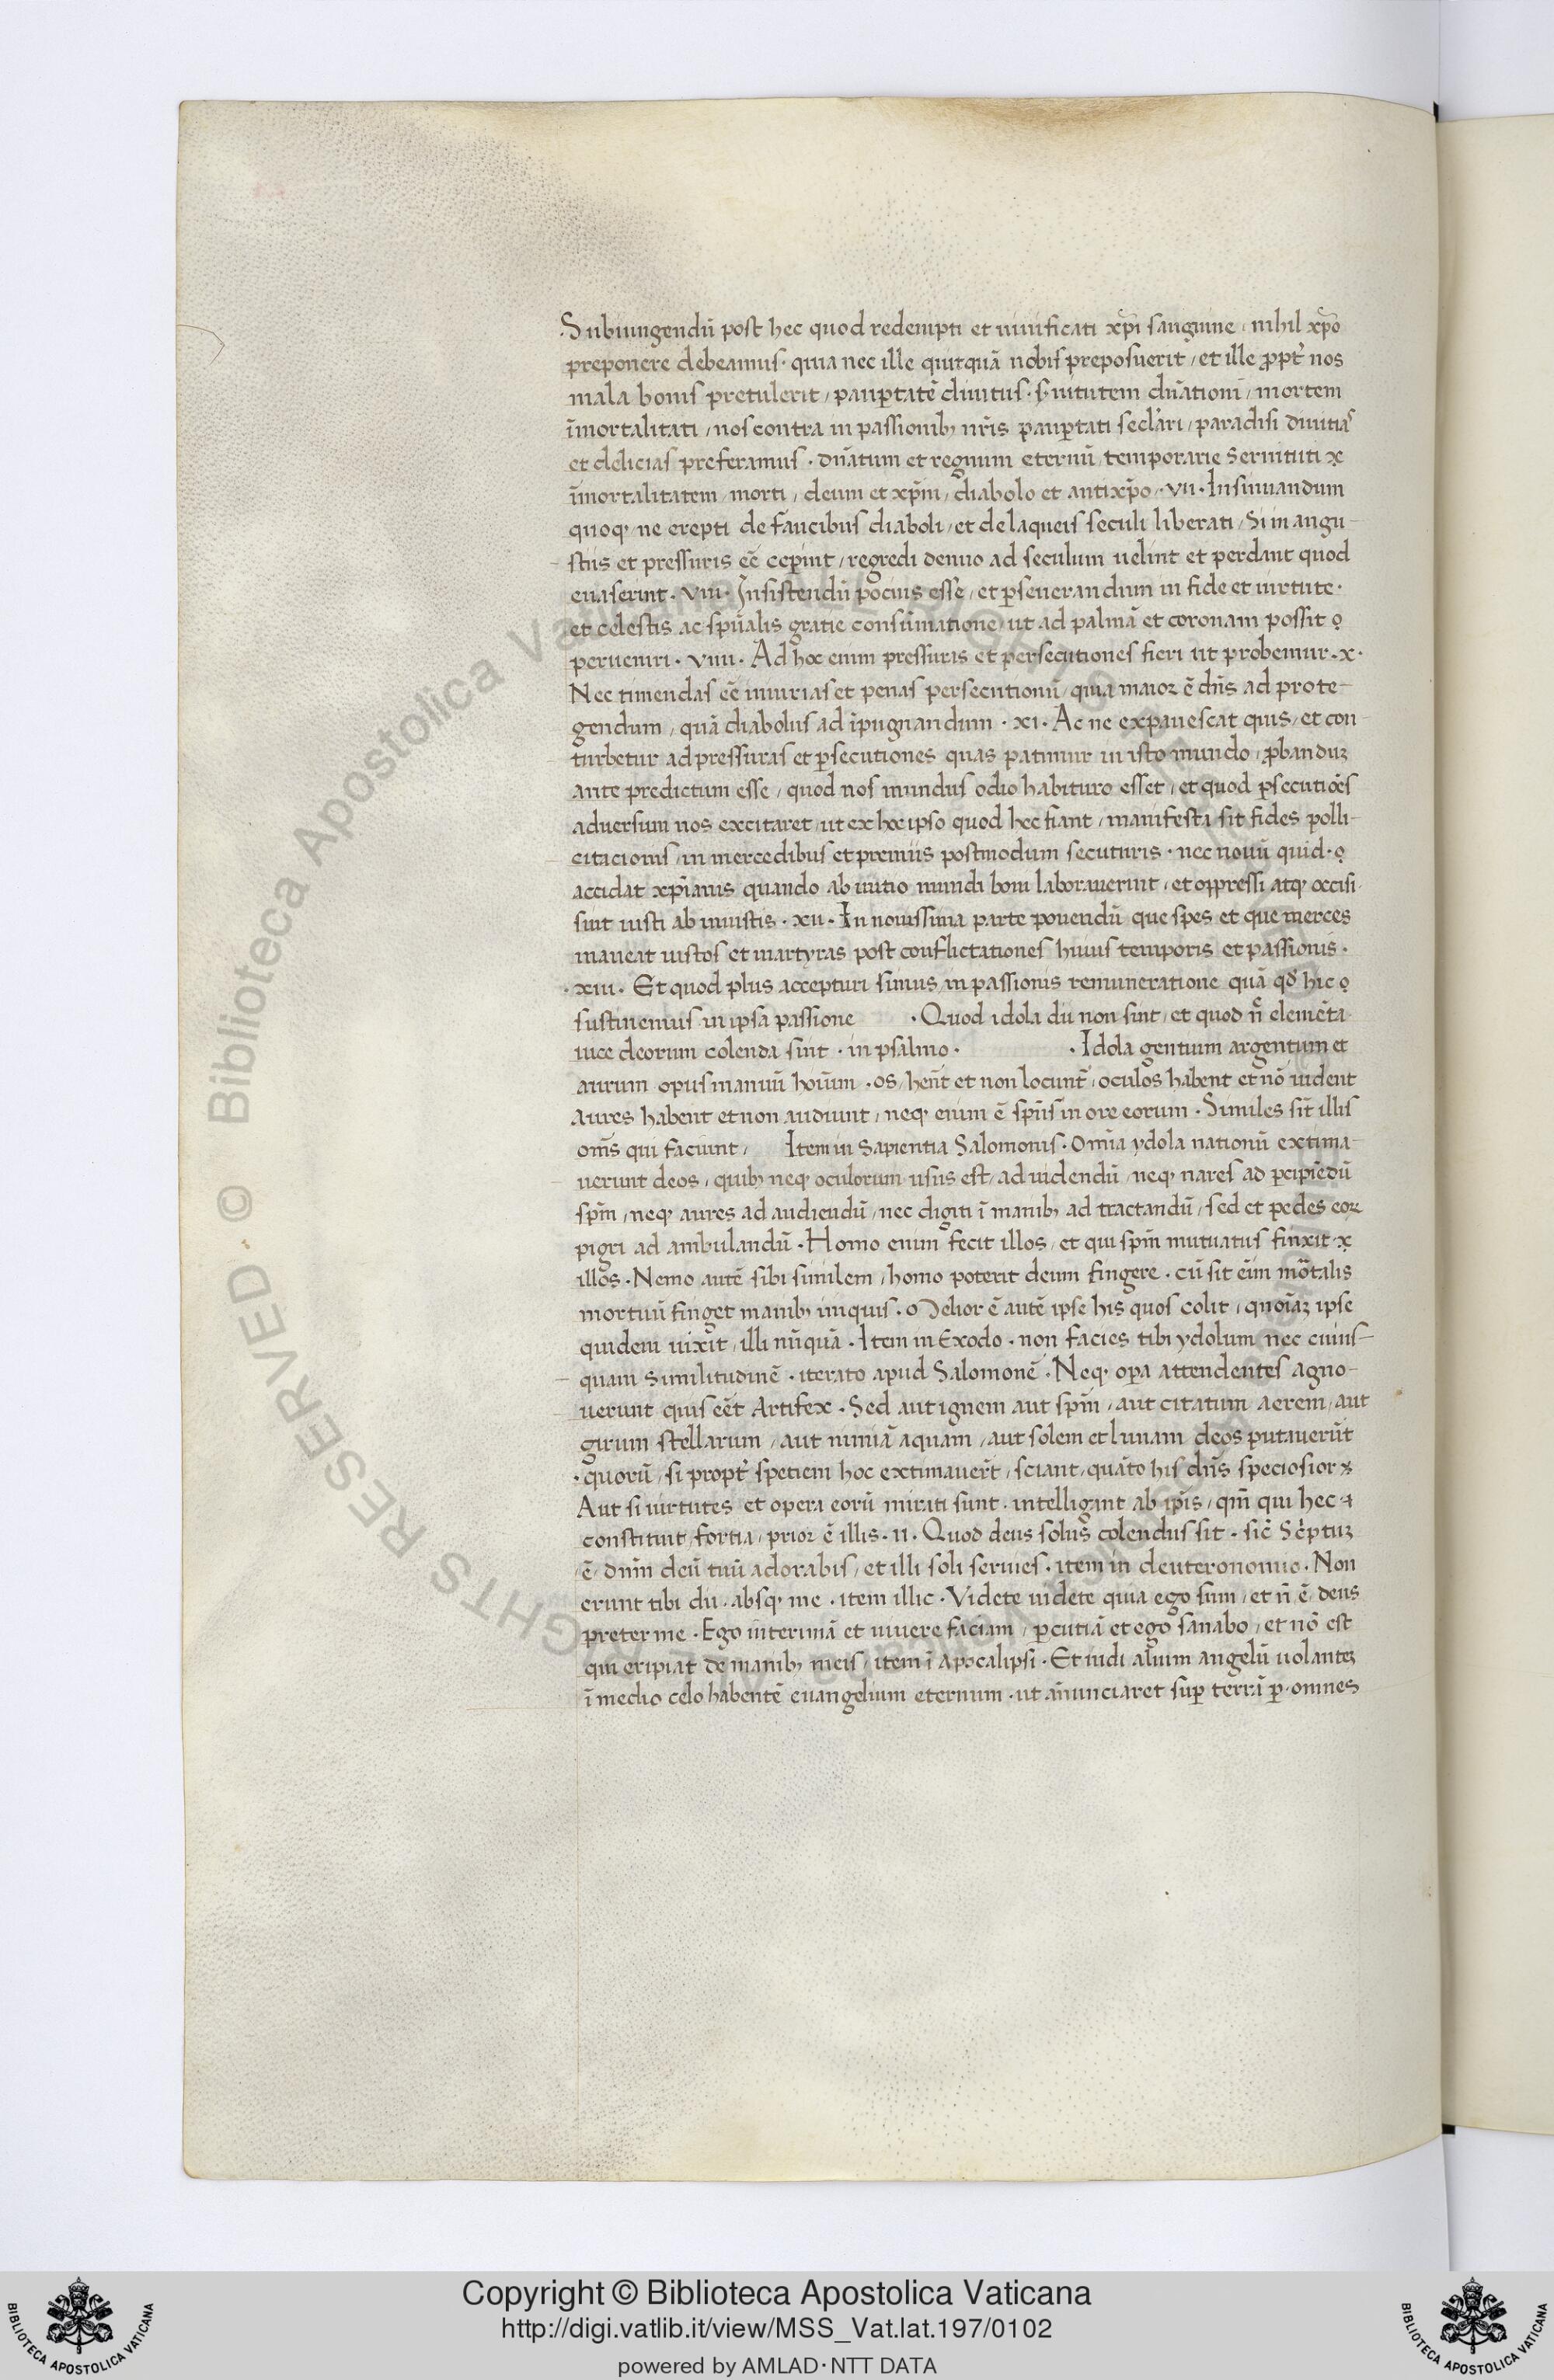 Subiungendũ post hec quod redempti et uiuificati xp̃i sanguine, nihil xp̃o
preponere debeamus. quia nec ille quicquã nobis preposuerit, et ille ꝓpt̃ nos
mala bonis pretulerit, paup̱tatẽ diuitiis. s̃uitutem dñationi, mortem
ĩmortalitati, nos contra in passionib, nr̃is paup̱tati secl̃ari, paradisi diuitias
et delicias preferamus. dñatum et regnum eternũ, temporarie seruituti
ĩmortalitatem, morti, deum et xp̃m, diabolo et antixp̃o. VII. Insinuandum
quoq, ne erepti de faucibus diaboli, et de laqueis seculi liberati, si in angu-
stiis et pressuris eẽ cep̱int, regredi denuo ad seculum uelint et perdant quod
euaserint. VIII. Insistendũ pocius esse, et p̱seuerandum in fide et uirtute.
et celestis ac spũalis gratie consũmatione, ut ad palmã et coronam possit
perueniri. VIIII. Ad hoc enim pressuras et persecutiones fieri ut probemur. X.
Nec timendas eẽ iniurias et penas persecutionũ, quia maior ẽ dñs ad prote-
gendum, quã diabolus ad ĩpugnandum. XI. Ac ne expauescat quis, et con-
turbetur ad pressuras et p̱secutiones quas patimur in isto mundo, ꝓbanduz
ante predictum esse, quod nos mundus odio habituro esset, et quod p̱secutiões
aduersum nos excitaret, ut ex hoc ipso quod hec fiant, manifesta sit fides polli-
citacionis, in mercedibus et premiis postmodum secuturis. nec nouũ quid.
accidat xp̃ianis quando ab initio mundi boni laborauerint, et oppressi atq, occisi
sint iusti ab iniustis. XII. In nouissima parte ponendũ que spes et que merces
maneat iustos et martyras post conflictationes huius temporis et passionis.
.XIII. Et quod plus accepturi simus in passionis remuneratione quã qđ hic
sustinemus in ipsa passione . Quod idola dii non sint, et quod ñ elemẽta
uice deorum colenda sint. in psalmo. . Idola gentium argentum et
aurum opus manuũ hoĩum. os, hent̃ et non locunt̃, oculos habent et nõ uident
aures habent et non audiunt, neq, enim ẽ spũs in ore eorum. Similes sĩt illis
oms̃ qui faciunt, Item in Sapientia Salomonis. Omĩa ydola nationũ extima-
uerunt deos, quib, neq, oculorum usus est, ad uidendũ, neq, nares ad p̱cipiẽdũ
spm̃, neq, aures ad audiendũ, nec digiti ĩ manib, ad tractandũ, sed et pedes eoꝝ
pigri ad ambulandũ. Homo enim fecit illos, et qui spm̃ mutuatus finxit
illos. Nemo autẽ sibi similem, homo poterit deum fingere. cũ sit eĩm mõtalis
mortuũ finget manib, iniquis. Melior ẽ autẽ ipse his quos colit, quoĩaz ipse
quidem uixit̃, illi nũquã. Item in Exodo. non facies tibi ydolum nec cuius-
quam similitudinẽ. iterato apud Salomonẽ. Neq, op̱a attendentes agno-
uerunt quis eẽt Artifex. Sed aut ignem aut spm̃, aut citatum aerem, aut
girum stellarum, aut nimiã aquam, aut solem et lunam deos putauerũt
.quorũ, si propt̃ spetiem hoc extimauer̃t, sciant, quãto his dñs speciosior
Aut si uirtutes et opera eorũ mirati sunt. intelligant ab ip̃is, qm̃ qui hec
constituit, fortia, prior ẽ illis. II. Quod deus solus colendus sit. sic̃ Sc̃ptuz
ẽ, dnm̃ deũ tuũ adorabis, et illi soli seruies. item in deuteronomio. Non
erunt tibi dii. absq, me. item illic. Videte uidete quia ego sum, et ñ ẽ, deus
preter me. Ego interimã et uiuere faciam, p̱cutiã et ego sanabo, et nõ est
qui eripiat de manib, meis, item ĩ Apocalipsi. Et uidi alium angelũ uolantez
ĩ medio celo habentẽ euangelium eternum. ut añunciaret sup̱ terrã p̱. omnes
© Biblioteca Apostolica Vaticana ALL RIGHTS RESERVED
Copyright © Biblioteca Apostolica Vaticana
http://digi.vatlib.it/view/MSS_Vat.lat.197/0102
powered by AMLAD·NTT DATA
BIBLIOTECA APOSTOLICA VATICANA
BIBLIOTECA APOSTOLICA VATICANA